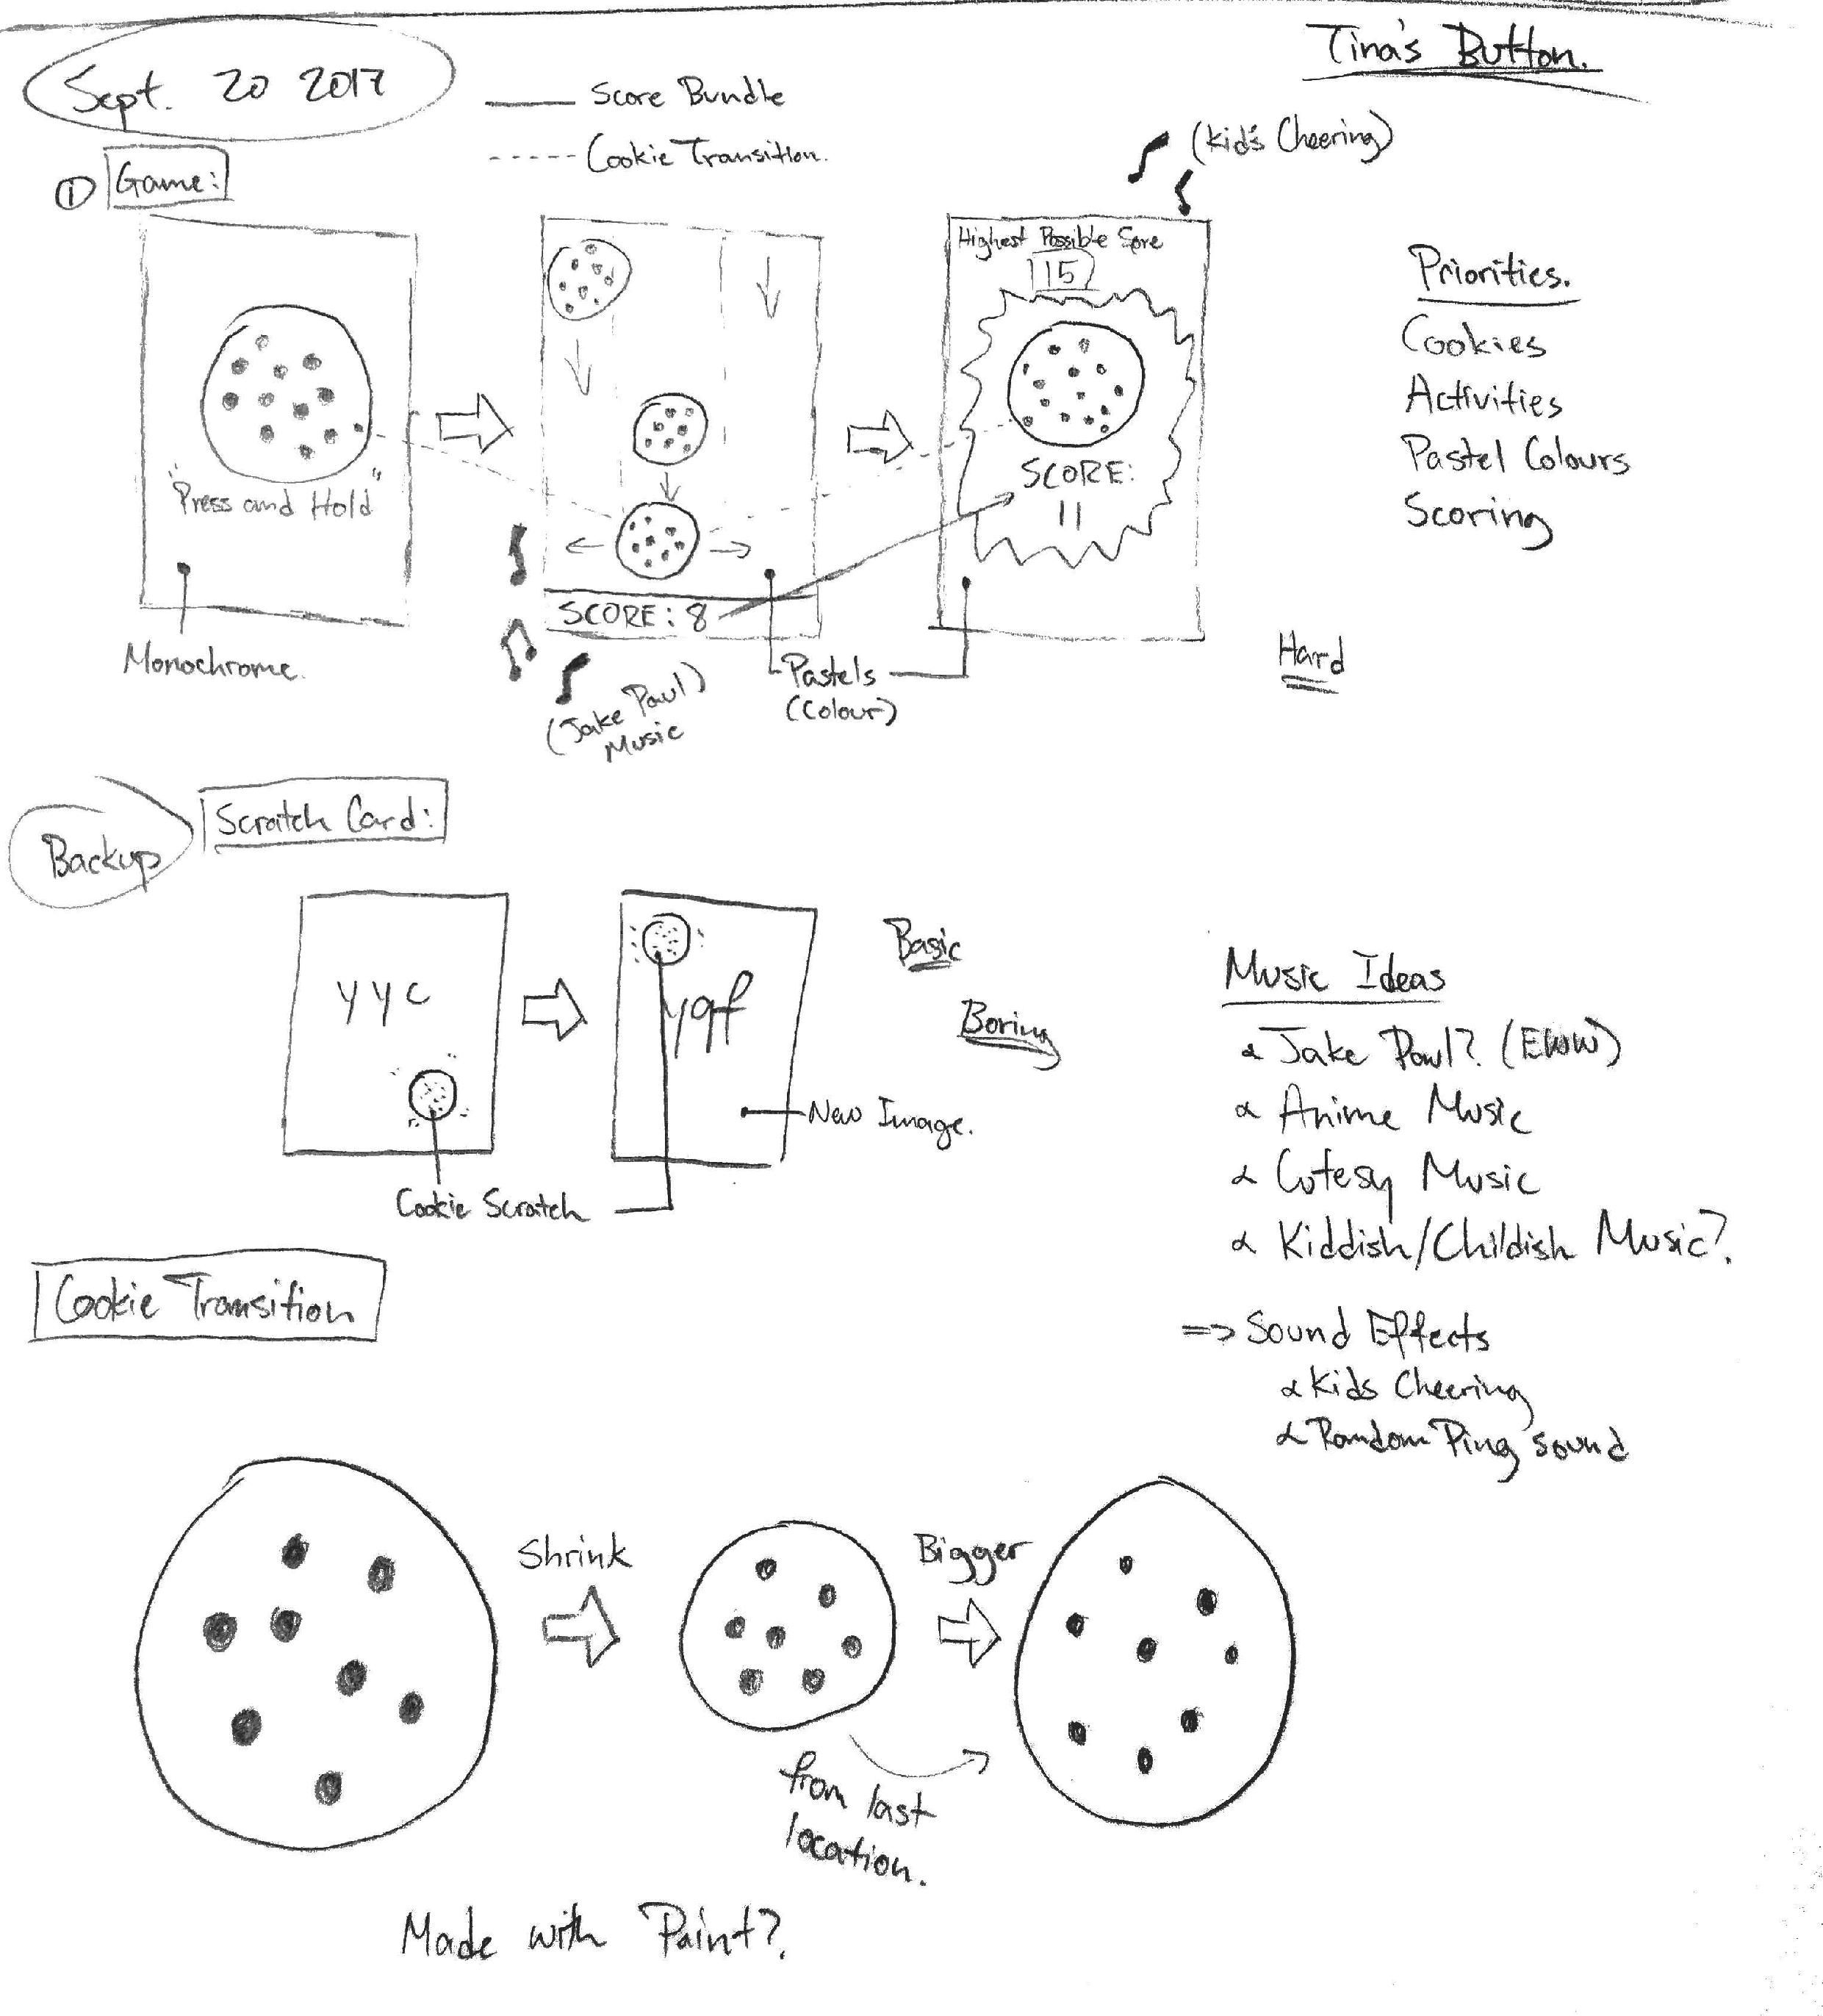 Tina's Button.
Sept. 20 2017
Score Bundle
Cookie Transition.
(Kid's Cheering)
① Game:
"Press and Hold"
Monochrome.
SCORE: 8
(Jake Paul)
Music
Highest Possible Sore
15
SCORE:
11
Pastels
(Colour)
Priorities.
Cookies
Activities
Pastel Colours
Scoring
Hard
Backup
Scratch Card:
yyc
Cookie Scratch
New Image.
Basic
Boring
Music Ideas
Jake Paul? (EWW)
Anime Music
Cutesy Music
Kiddish/Childish Music?
=> Sound Effects
Kids Cheering
Random Ping sound
Cookie Transition
Shrink
Bigger
from last
location.
Made with Paint?